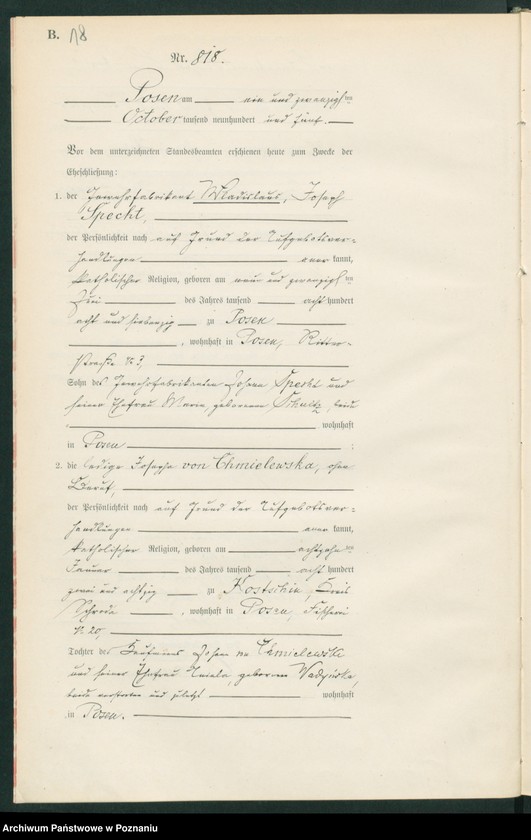 B. 18
Nr. 818.
Posen am ein und zwanzigsten
October tausend neunhundert und fünf.
Vor dem unterzeichneten Standesbeamten erschienen heute zum Zwecke der
Eheschließung:
1. der Gewehrfabrikant Wladislaus, Joseph
Specht,
der Persönlichkeit nach auf Grund der Aufgebotsver=
handlungen anerkannt,
katholischer Religion, geboren am neun und zwanzigsten
des Jahres tausend acht hundert
acht und siebenzig zu Posen
, wohnhaft in Posen, Ritter-
straße N. 3,
Sohn des Gewehrfabrikanten Johann Specht und
seiner Ehefrau Maria, geborenen Schultz, beide
wohnhaft
in Posen ;
2. die ledige Josepha von Chmielewska, ohne
Beruf,
der Persönlichkeit nach auf Grund der Aufgebotsver=
handlungen anerkannt,
katholischer Religion, geboren am achtzehnten
Januar des Jahres tausend acht hundert
zwei und achtzig zu Kostschin, Kreis
Schroda , wohnhaft in Posen, Fischerei
N. 20,
Tochter des Kaufmanns Johann von Chmielewski
und seiner Ehefrau geborenen
beide verstorben und zuletzt wohnhaft
in Posen.
Archiwum Państwowe w Poznaniu